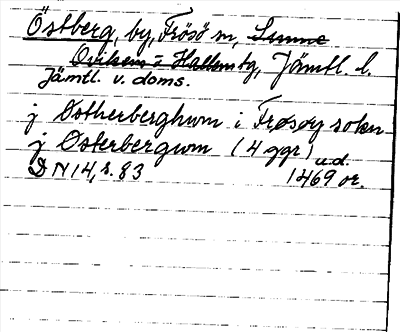 Östberg, by, Frösö sn, Sunne
Ovikens o Hallens tg, Jämtl. l.
Jämtl. v. doms.
j Østherberghwm i Frøsøy sokn
j Østerbergwm (4 ggr)
DN 14, s. 83 u.d. 1469 or.